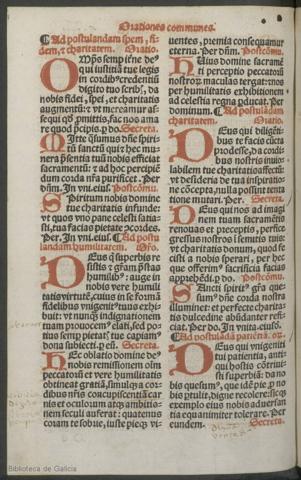 Orationes communes.
¶ Ad postulandam spem, fi-
dem, ⁊ charitatem. Oratio.
OMp̄s semp iterne deꝰ
qui iustitiā tue legis
in cordibꝰ credentiū
digito tuo scribꝭ, da
nobis fidei, spei, et charitatis
augmentū: vt mereamur as-
sequi qḋ ꝓmittis, fac nos ama
re quod p̄cipis. ꝑ do. Secreta.
MItte qͣsumus dn̄e spiri-
tū sanctū qui ⁊ hec mu-
nera p̄sentia tuū nobis efficiat
sacramentū: ⁊ ad hoc percipiē
dum corda nr̄a purificet. Per
dn̄m. In vni. eius. Postcōmu.
SPiritum nobis domine
tue charitatis infunde:
vt quos vno pane celesti satia-
sti, tua facias pietate ↄcordes.
Per. In vni. eius. ¶ Ad postu
landam humilitatem. Oro.
DEus q̇ superbis re-
sistis ⁊ gram̄ p̄stas
humilibꝰ: auge in
nobis vere humili
tatis virtutē, cuius in se formā
fidelibus vnigenitꝰ tuus exhi-
buit: vt nunq̄ indignationem
tuam ꝓuocemꝰ elati, sed po-
tius semp pietatꝭ tue capiam
dona subiecti. ꝑ eū. Secreta.
HEc oblatio domine deꝰ
nobis remissionem oīm
peccatorū et vere humilitatis
obtineat gratiā, simulqꝫ a cor-
dibus nr̄is concupiscentiā car
nis et oculorum atqꝫ ambitio-
nem seculi auferat: quatenus
coram te sobrie, iuste pieqꝫ vi-
uentes, premia consequamur
eterna. Per dn̄m. Postcōmu.
HUius domine sacramē
ti perceptio peccatorū
nostroꝝ maculas tergat: nosqꝫ
per humilitatis exhibitionem
ad celestia regna ꝑducat. Per
dominum. ¶ Ad postulandā
charitatem. Oratio.
DEus qui diligēti-
bus te facis cūcta
prodesse, da cordi-
bus nostris inuio-
labilem tue charitatis affectū:
vt desideria de tua inspiratio-
ne cōcepta, nulla possint tenta
tione mutari. Per. Secreta.
DEus qui nos ad imagi
nem tuam sacramētis
renouas et preceptis, perfice
gressus nostros ī semitis tuis:
vt charitatis donum, quod fe-
cisti a nobis sperari, per hec
que offerimꝰ sacrificia facias
apprehēdi. ꝑ do. Postcōmu.
SAncti spiritꝰ gr̄a que-
sumꝰ dn̄e corda nostra
illuminet: et perfecte charita-
tis dulcedine abūdanter refi-
ciat. Per do. In vnita. eiusd.
¶ Ad postuladā patiētiā. or.
DEus qui vnigeniti
tui patientia, anti-
qui hostis cōtriui-
sti superbiā: da no
bis quesumꝰ, que idē pie ꝓ no
bis ptulit, digne recolere: sicqꝫ
exemplo eius nobis aduersan
tia equanimiter tolerare. Per
eundem. Secreta.
Biblioteca de Galicia